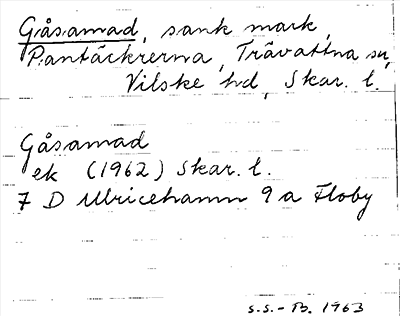 Gåsamad, sank mark,
Prantäckrerna, Trävattna sn,
Vilske hd, Skar. l.
Gåsamad
ek (1962) Skar. l.
7 D Ulricehamn 9 a Floby
S.S.-B. 1963